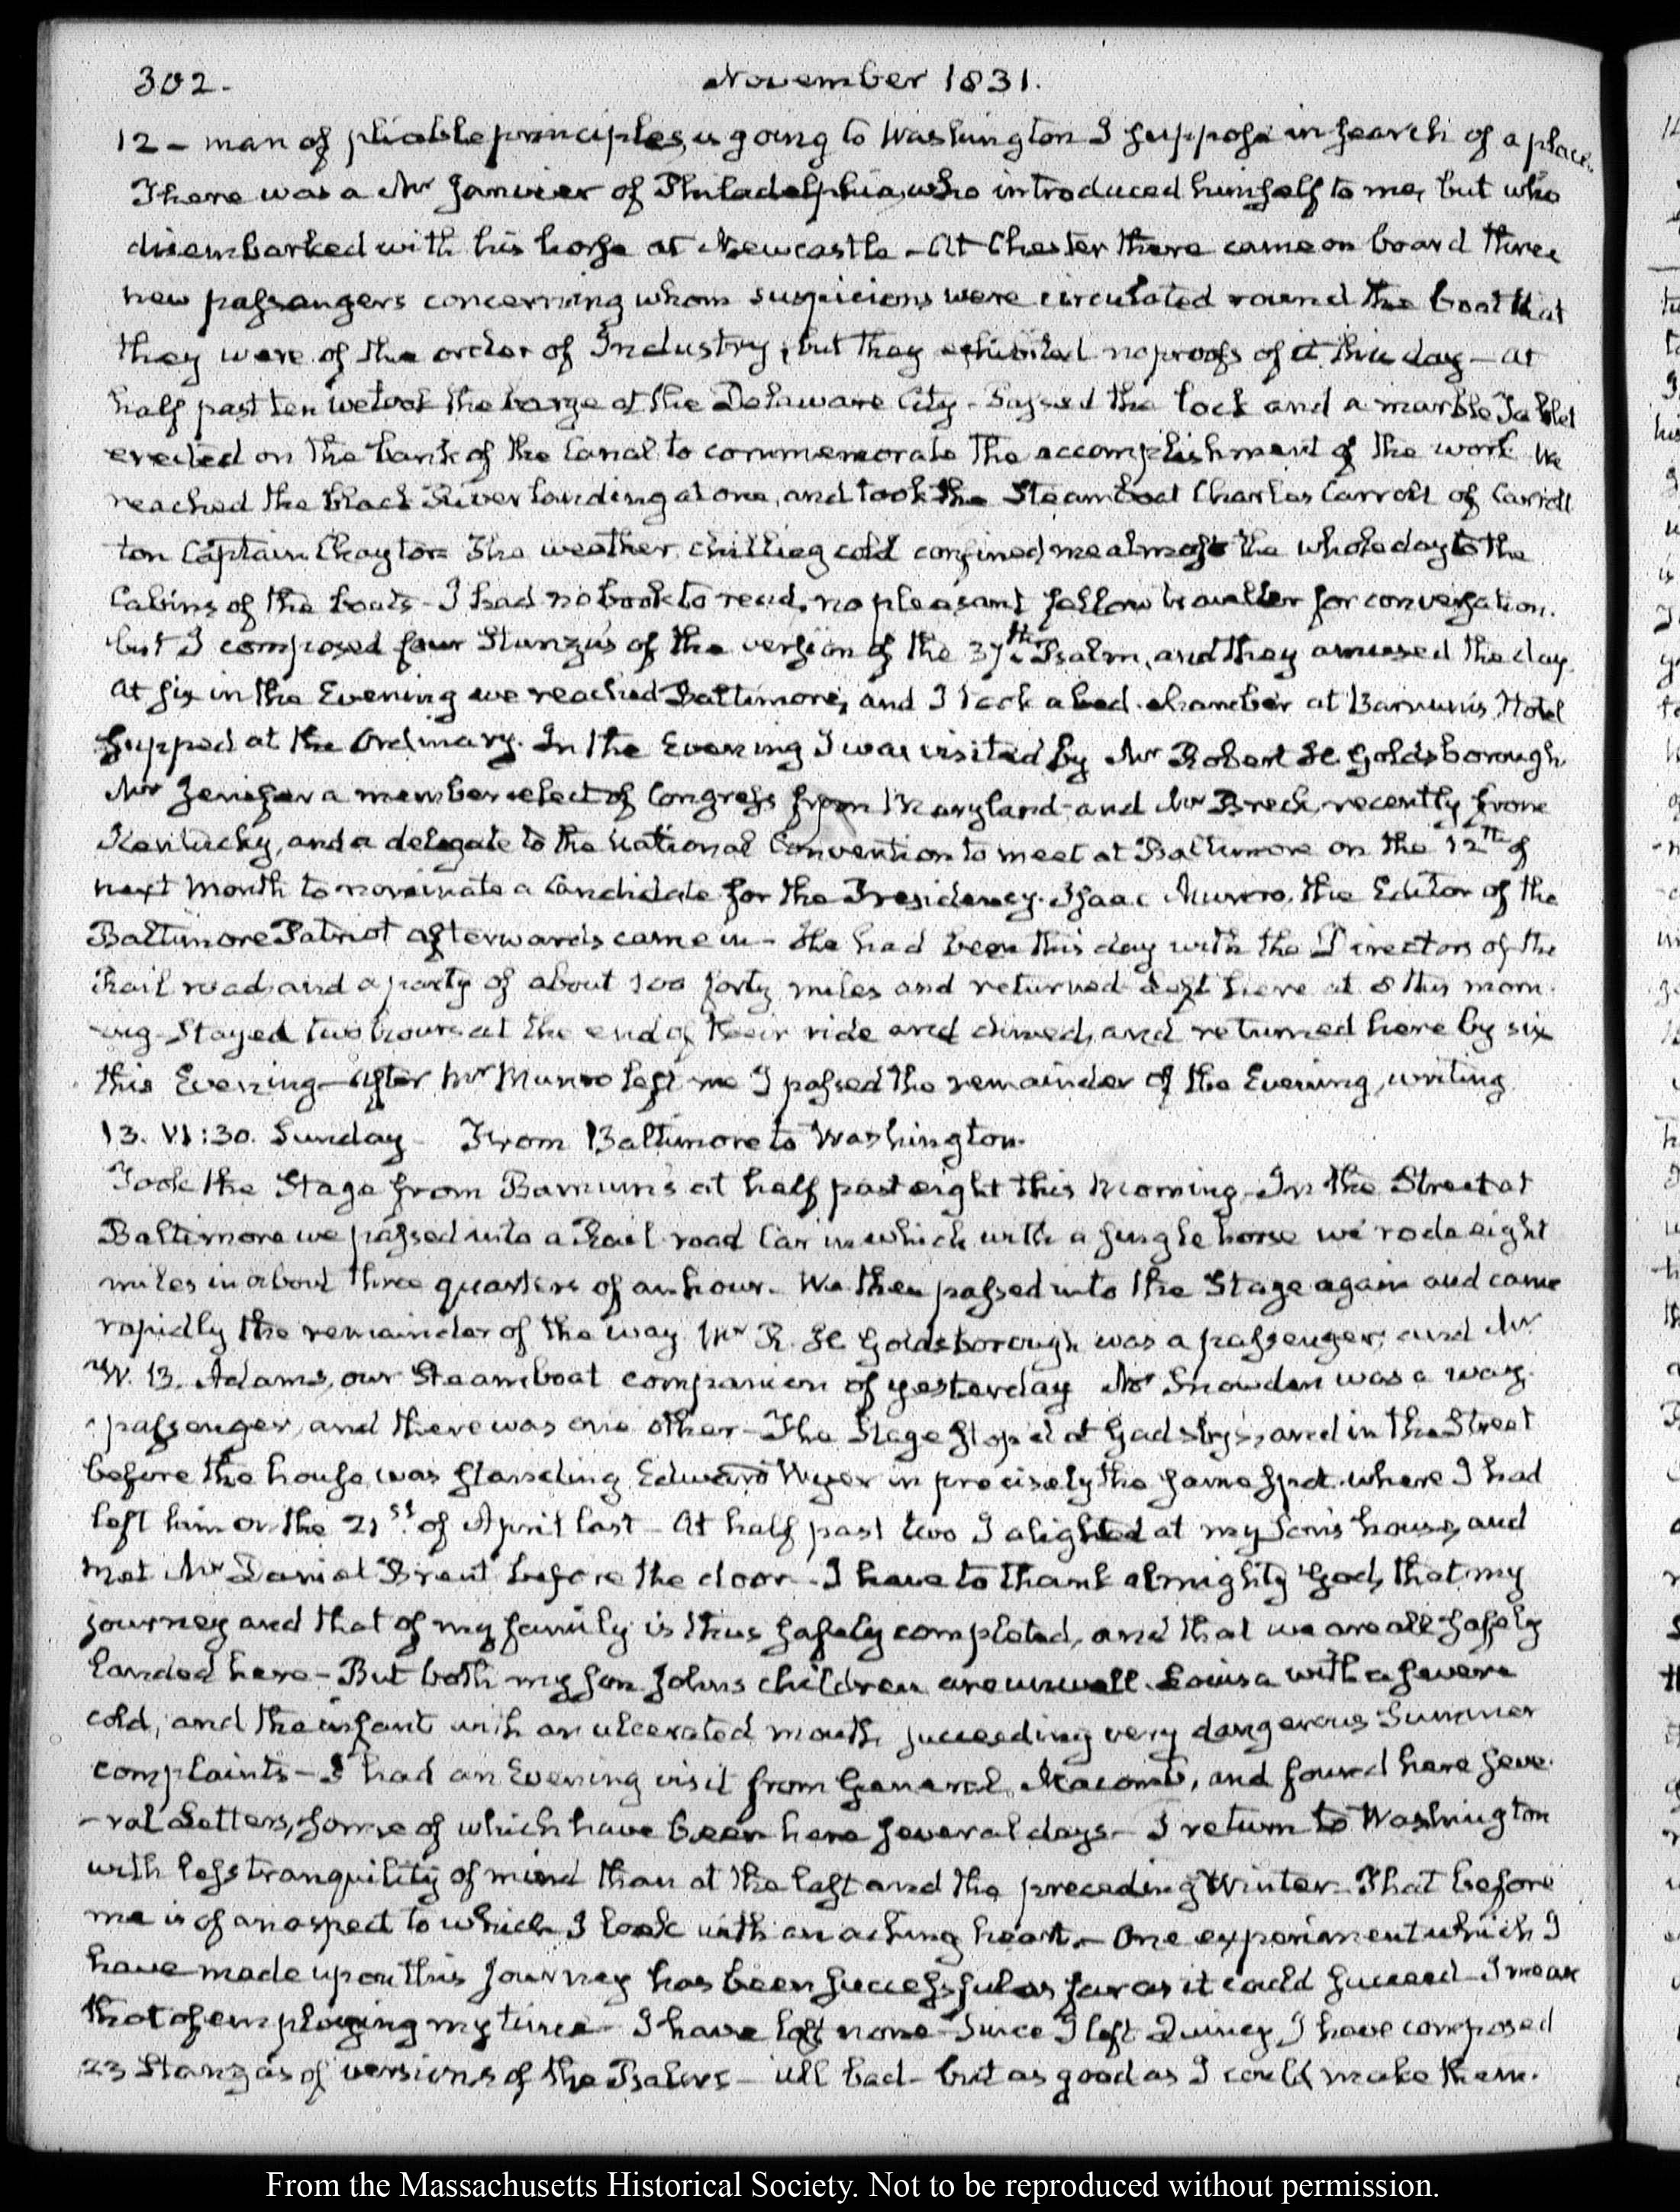 302. November 1831.
12 – man of pliable principles, is going to Washington I suppose in search of a place.
There was a Mr Janvier of Philadelphia, who introduced himself to me, but who
disembarked with his horse at Newcastle – At Chester there came on board three
new passengers concerning whom suspicions were circulated round the boat that
they were of the order of Industry; but they exhibited no proofs of it this day – at
half past ten we took the barge at the Delaware City – Passed the lock and a marble Tablet
erected on the bank of the Canal to commemorate the accomplishment of the work. We
reached the black River landing at one, and took the Steamboat Charles Carroll of Carroll
ton Captain Chaytor. The weather chilling cold confined me almost the whole day to the
Cabins of the boats – I had no book to read, no pleasant fellow traveller for conversation.
but I composed four Stanza's of the version of the 37th Psalm, and they amused the day.
At six in the Evening we reached Baltimore, and I took a bed-chamber at Barnum's Hotel
supped at the Ordinary. In the Evening I was visited by Mr Robert H. Goldsborough
Mr Jenifer a member elect of Congress from Maryland – and Mr Breck, recently from
Kentucky, and a delegate to the National Convention to meet at Baltimore on the 12th of
next Month to nominate a Candidate for the Presidency. Isaac Munro, the Editor of the
Baltimore Patriot afterwards came in – He had been this day with the Directors of the
Rail road, and a party of about 100 forty miles and returned – left here at 8 this morn-
-ing – Stayed two hours at the end of their ride and dined, and returned here by six
this Evening – After Mr Munro left me I passed the remainder of the Evening, writing
13. VI:30. Sunday – From Baltimore to Washington.
Took the Stage from Barnum's at half past eight this Morning – In the Street at
Baltimore we passed into a Rail-road Car in which with a single horse we rode eight
miles in about three quarters of an hour. We then passed into the Stage again and came
rapidly the remainder of the way. Mr R. H. Goldsborough was a passenger; and Mr
W. B. Adams, our Steamboat companion of yesterday. Mr Snowden was a way-
-passenger, and there was one other – The Stage stop'd at Gadsby's, and in the Street
before the house was standing Edward Wyer in precisely the same spot where I had
left him on the 21st of April last – At half past two I alighted at my Son's house, and
met Mr Daniel Brent before the door – I have to thank almighty God, that my
journey and that of my family is thus safely completed, and that we are all safely
landed here – But both my Son John's children are unwell. Louisa with a severe
cold, and the infant with an ulcerated mouth, succeeding very dangerous Summer
complaints – I had an Evening visit from General Macomb, and found here seve-
-ral Letters, some of which have been here several days – I return to Washington
with less tranquility of mind than at the last and the preceding Winter – That before
me is of an aspect to which I look with an aching heart. – One experiment which I
have made upon this Journey has been successful as far as it could succeed – I mean
that of employing my time – I have lost none – Since I left Quincy I have composed
23 Stanza's of versions of the Psalms – all bad – but as good as I could make them.
From the Massachusetts Historical Society. Not to be reproduced without permission.